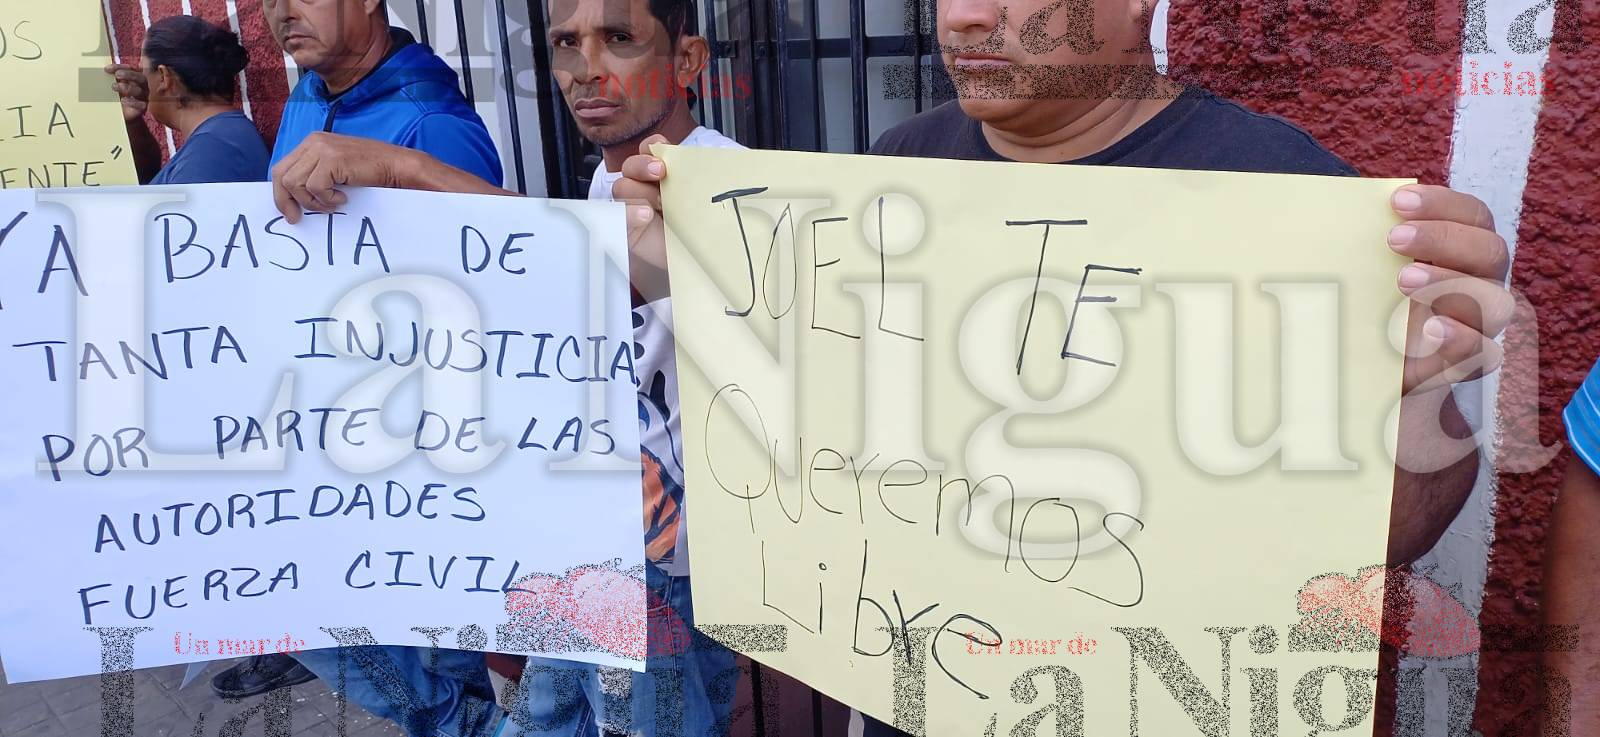 OS
IA
ENTE"
YA BASTA DE
TANTA INJUSTICIA,
POR PARTE DE LAS
AUTORIDADES
FUERZA CIVIL
JOEL TE
Queremos
Libre
LaNigua
LaNigua
noticias
LaNigua
noticias
Un mar de
LaNigua
Un mar de
LaNigua